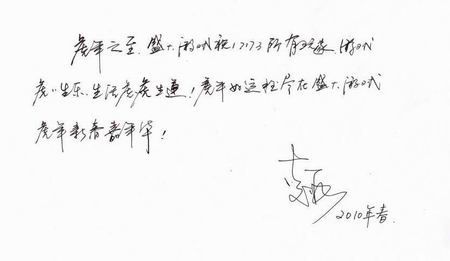 虎年之至,盛大游戏祝17173所有玩家,游戏
虎虎生乐,生活虎虎生道!虎年好运程尽在盛大游戏
虎年新春嘉年华!
2010年春.